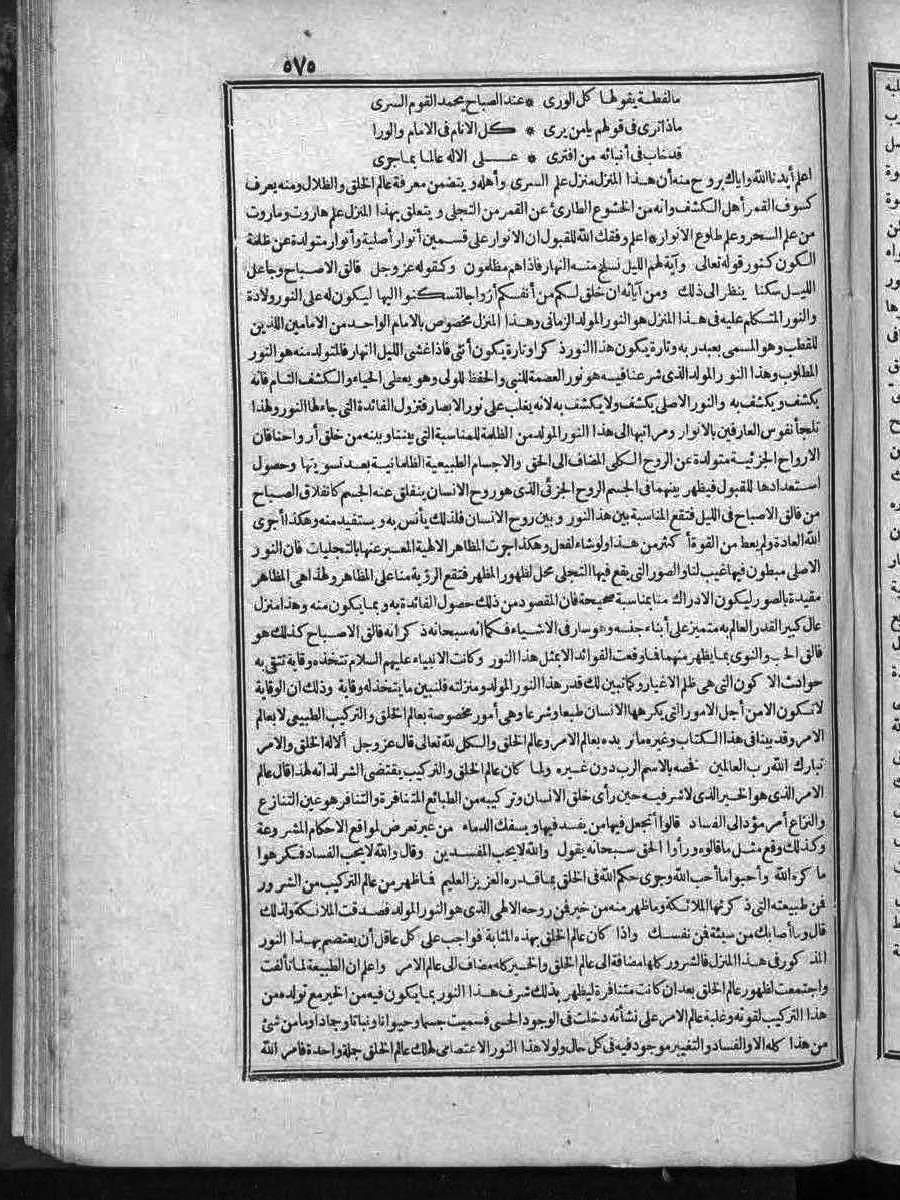 ٥٧٥
مالفظة يقولها كل الورى * عند الصباح يحمد القوم السرى
ماذا ترى فى قولهم يامن يرى * كل الانام فى الامام والورا
قد ناب فى أنبائه من افترى * على الاله عالما بماجرى
اعلم أيدنا الله واياك بروح منه أن هذا المنزل منزل علم السرى وأهله ويتضمن معرفة عالم الخلق والظلال ومنه يعرف
كسوف القمر أهل الكشف وانه من الخشوع الطارئ عن القمر من التجلى ويتعلق بهذا المنزل علم هاروت وماروت
من علم السحر وعلم طلوع الانوار * اعلم وفقك الله للقبول ان الانوار على قسمين أنوار أصلية وأنوار متولدة عن ظلمة
الكون كنور قوله تعالى وآية لهم الليل نسلخ منه النهار فاذاهم مظلمون وكقوله عز وجل فالق الاصباح وجاعل
الليل سكنا ينظر الى ذلك ومن آياته ان خلق لكم من أنفسكم أزواجا لتسكنوا اليها ليكون له على النور ولادة
والنور المتكلم عليه فى هذا المنزل هو النور المولد الزمانى وهذا المنزل مخصوص بالامام الواحد من الامامين اللذين
للقطب وهو المسمى بعبد ربه وتارة يكون هذا النور ذكرا وتارة يكون أنثى فاذا غشى الليل النهار فالمتولد منه هو النور
المطلوب وهذا النور المولد الذى شرعنا فيه هو نور العصمة للنبى والحفظ للولى وهو يعطى الحياء والكشف التام فانه
يكشف ويكشف به والنور الاصلى يكشف ولا يكشف به لانه يغلب على نور الابصار فتزول الفائدة التى جاء لها النور ولهذا
تلجأ نفوس العارفين بالانوار ومراتبها الى هذا النور المولد من الظلمة للمناسبة التى بيننا وبينه من خلق أرواحنا فان
الارواح الجزئية متولدة عن الروح الكلى المضاف الى الحق والاجسام الطبيعية الظلمانية بعد تسويتها وحصول
استعدادها للقبول فيظهر بينهما فى الجسم الروح الجزئى الذى هو روح الانسان ينفلق عنه الجسم كانفلاق الصباح
من فالق الاصباح فى الليل فتقع المناسبة بين هذا النور وبين روح الانسان فلذلك يأنس به ويستفيد منه وهكذا أجرى
الله العادة ولم يعط من القوة أكثر من هذا ولوشاء لفعل وهكذا جرت المظاهر الالهية المعبر عنها بالتجليات فان النور
الاصلى مبطون فيها غيب لنا والصور التى يقع فيها التجلى محل لظهور المظهر فتقع الرؤية منا على المظاهر ولهذا هى المظاهر
مقيدة بالصور ليكون الادراك منا بمناسبة صحيحة فان المقصود من ذلك حصول الفائدة به وبما يكون منه وهذا منزل
عال كبير القدر العالم به متميز على أبناء جنسه وهو سار فى الاشياء فكما انه سبحانه ذكر انه فالق الاصباح كذلك هو
فالق الحب والنوى بما يظهر منهما فما وقعت الفوائد الا بمثل هذا النور وكانت الانبياء عليهم السلام تتخذه وقاية تتقى به
حوادث الاكوان التى هى ظلم الاغيار وكما تبين لك قدر هذا النور المولد ومنزلته فلنبين ما يتخذ له وقاية وذلك ان الوقاية
لاتكون الا من أجل الامور التى يكرهها الانسان طبعا وشرعا وهى أمور مخصوصة بعالم الخلق والتركيب الطبيعى لا بعالم
الامر وقد بينا فى هذا الكتاب وغيره مانريده بعالم الامر وعالم الخلق والكل لله تعالى قال عز وجل ألا له الخلق والامر
تبارك الله رب العالمين فخصه بالاسم الرب دون غيره ولما كان عالم الخلق والتركيب يقتضى الشر لذاته لهذا قال عالم
الامر الذى هو الخير الذى لاشر فيه حين رأى خلق الانسان وتركيبه من الطبائع المتنافرة والتنافر هو عين التنازع
والنزاع أمر مؤد الى الفساد قالوا أتجعل فيها من يفسد فيها ويسفك الدماء من غير تعرض لمواقع الاحكام المشروعة
وكذلك وقع مثل ماقالوه ورأوا الحق سبحانه يقول والله لايحب المفسدين وقال والله لايحب الفساد فكرهوا
ما كره الله وأحبوا ما أحب الله وجرى حكم الله فى الخلق بما قدره العزيز العليم فما ظهر من عالم التركيب من الشرور
فمن طبيعته التى ذكرتها الملائكة وما ظهر منه من خير فمن روحه الالهى الذى هو النور المولد فصدقت الملائكة ولذلك
قال وما أصابك من سيئة فمن نفسك واذا كان عالم الخلق بهذه المثابة فواجب على كل عاقل أن يعتصم بهذا النور
المذكور فى هذا المنزل فالشرور كلها مضافة الى عالم الخلق والخير كله مضاف الى عالم الامر واعلم ان الطبيعة لما تألفت
واجتمعت لظهور عالم الخلق بعد ان كانت متنافرة ليظهر بذلك شرف هذا النور بما يكون فيه من الخير مع تولده من
هذا التركيب لقوته وغلبة عالم الامر على نشأته دخلت فى الوجود الحسى فسميت جسما وحيوانا ونباتا وجمادا وما من شئ
من هذا كله الا والفساد والتغيير موجود فيه فى كل حال ولولا هذا النور الاعتصامى لهلك عالم الخلق جملة واحدة فامر الله